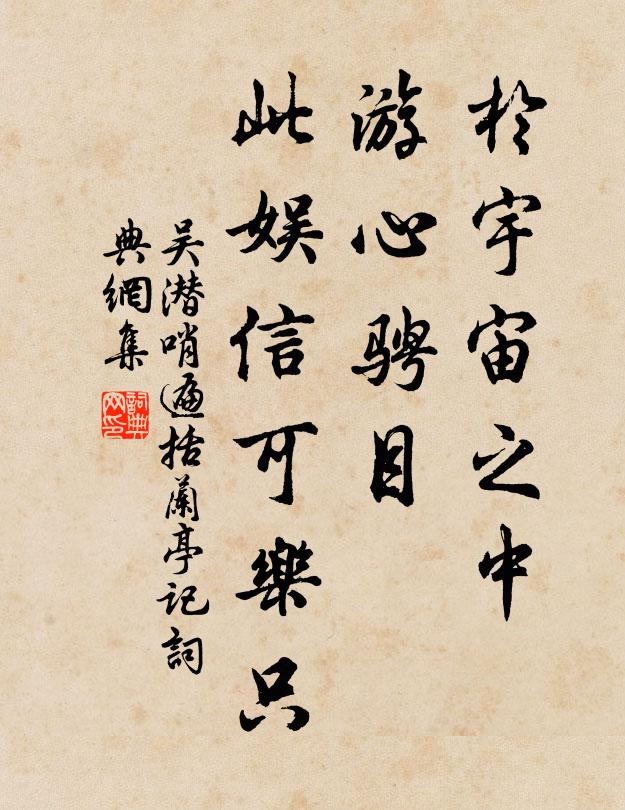 於宇宙之中
游心骋目
此娱信可樂只
吴潜哨遍括蘭亭记詞
典網集
詞典
网印